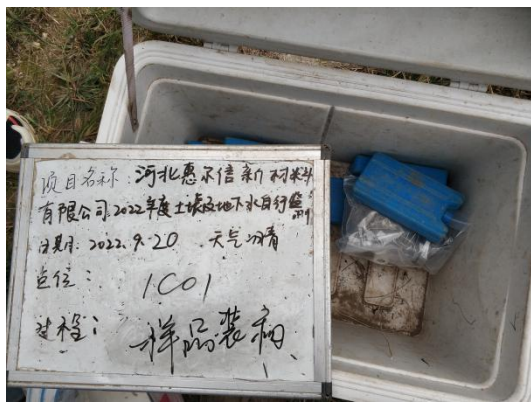 项目名称:河北惠尔信新材料
有限公司2022年度土壤及地下水自行监测
日期:2022.9.20 天气:晴
点位: 1C01
过程: 样品装箱